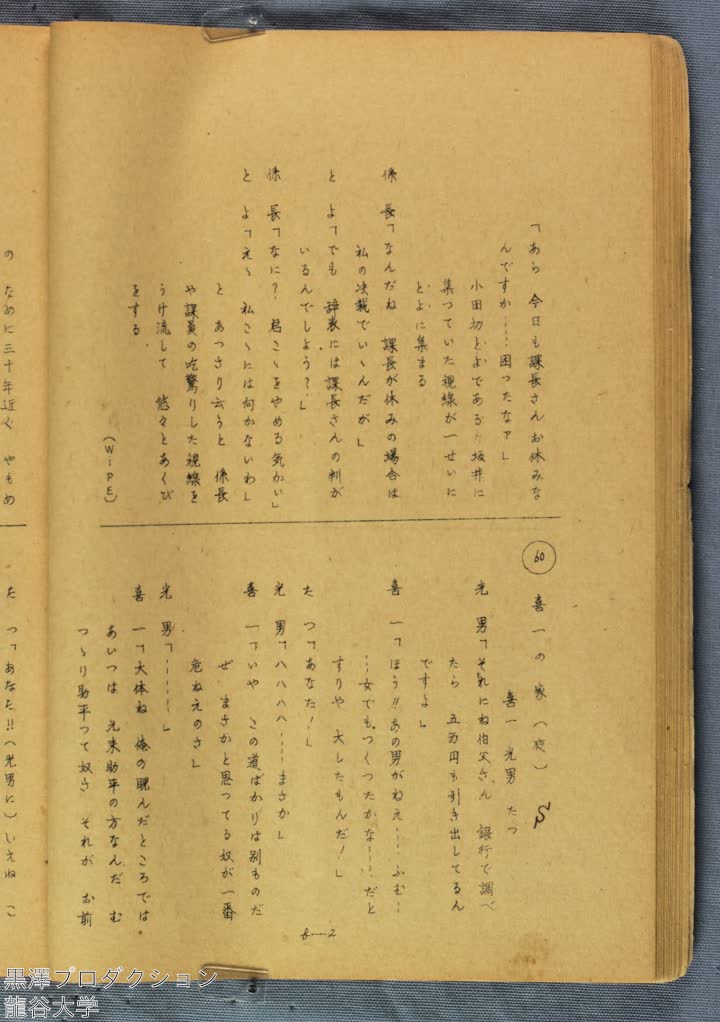 「あら 今日も課長さんお休みな
んですか……困つたなァ」
小田切とよである――坂井に
集つていた視線が一せいに
とよに集まる
係長「なんだね 課長が休みの場合は
私の決裁でいゝんだが」
とよ「でも 辞表には課長さんの判が
いるんでしよう?」
係長「なに? 君こゝをやめる気かい」
とよ「えゝ 私こゝには向かないわ」
と あつさり云うと 係長
や課員の吃驚りした視線を
うけ流して 悠々とあくび
をする
(WIPE)
60 喜一の家(夜)
喜一 光男 たつ
光男「それにね伯父さん 銀行で調べ
たら 五万円も引き出してるん
ですよ」
喜一「ほう!!あの男がねえ……ふむ…
…女でもつくつたかな……だと
すりや 大したもんだ!」
たつ「あなた!」
光男「ハハハハ……まさか」
喜一「いや この道ばかりは別ものだ
ぜ まさかと思つてる奴が一番
危ねえのさ」
光男「………」
喜一「大体ね 俺の睨んだところでは
あいつは 元来助平の方なんだ む
つゝり助平つて奴さ それが お前
の ために三十年近く やもめ
たつ「あなた!!(光男に)いえね こ
8—2
黒澤プロダクション
龍谷大学